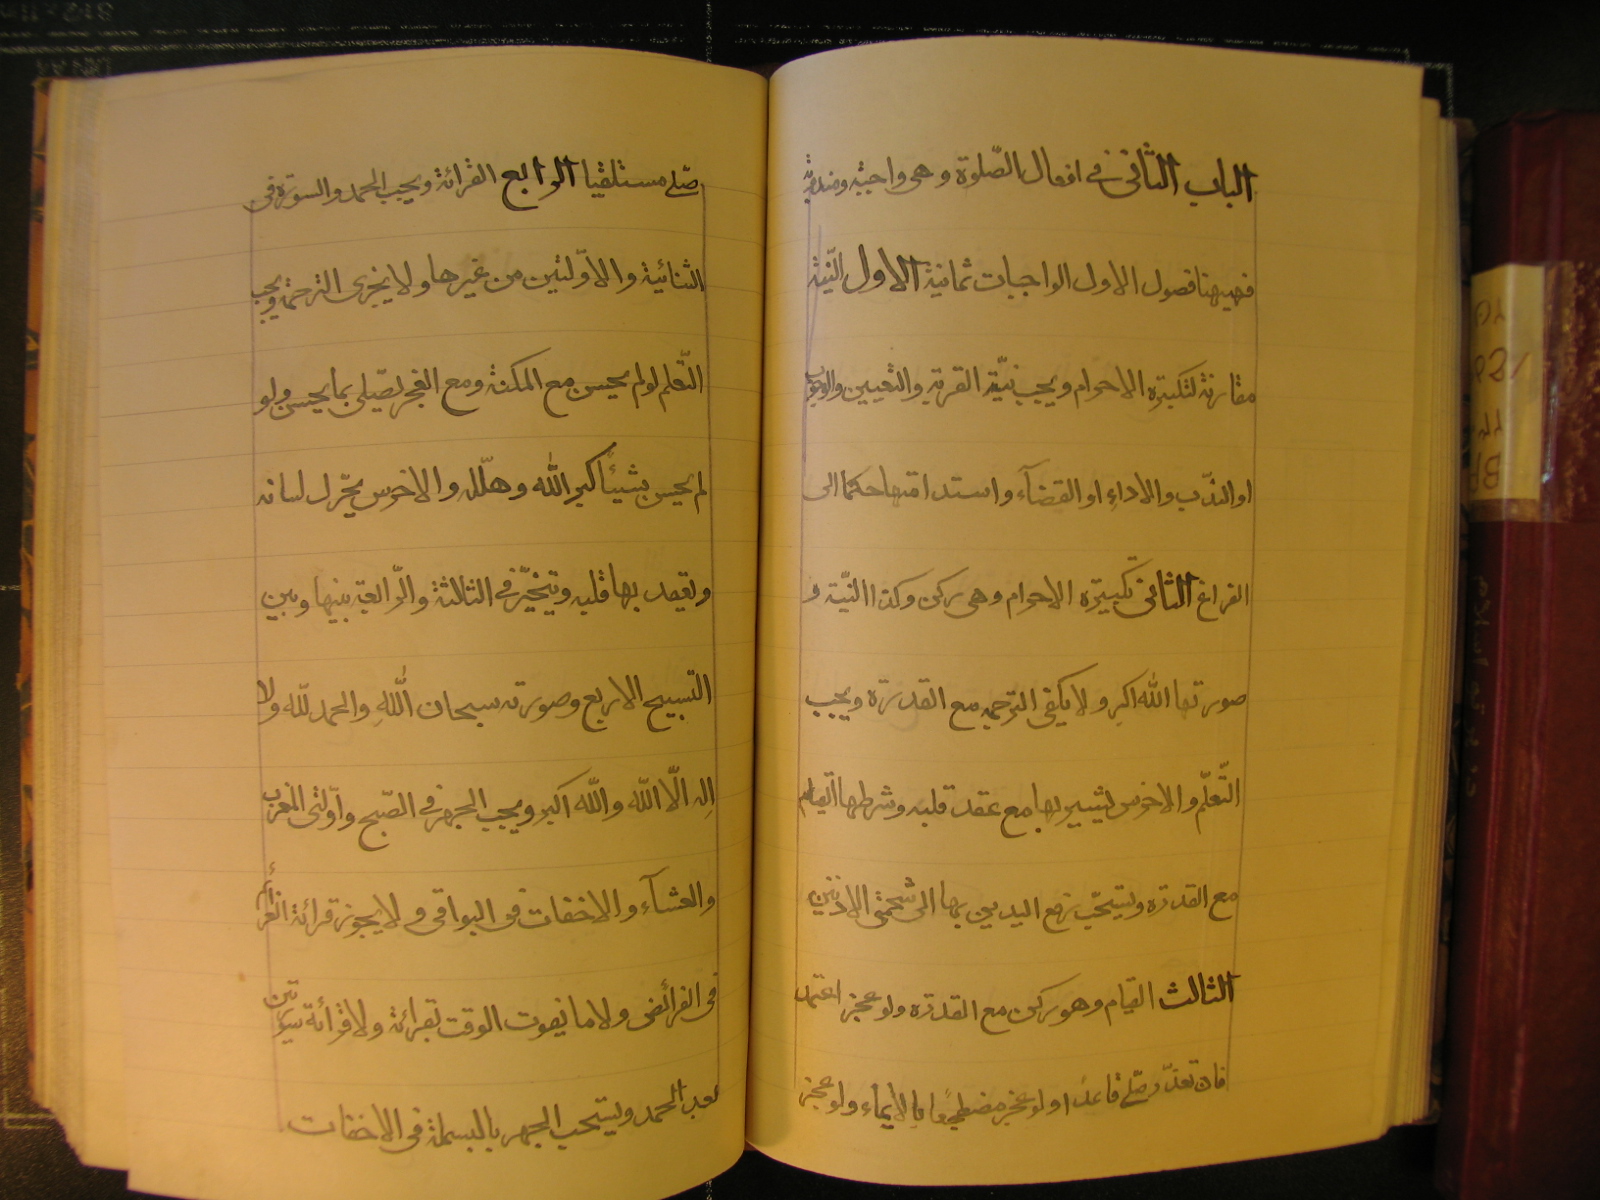 الباب الثانی فی افعال الصّلوة وهی واجبة ومندوبة
فهیهنا فصول الاول الواجبات ثمانیة الاول النّیة
مقارنة لتکبیرة الاحرام ویجب نیّة القربة والتعیین والوجوب
او النّدب والاداء او القضآء واستدامتها حکما الی
الفراغ الثانی تکبیرة الاحرام وهی رکن وکذا النّیة و
صورتها الله اکبر ولا یکفی الترجمة مع القدرة ویجب
التّعلّم والاخرس یشیر بها مع عقد قلبه وشرطها القیام
مع القدرة ویستحّب رفع الیدین بها الی شحمتی الاذنین
الثالث القیام وهو رکن مع القدرة ولو عجز اعتمد
فان تعذّر صلّی قاعدا ولو عجز مضطجعا بالایماء ولو عجز
صلّی مستلقیا الرابع القرائة ویجب الحمد والسورة فی
الثنائیة والاوّلتین من غیرها ولا یجزی الترجمة ویجب
التّعلم لو لم یحسن مع المکنة ومع العجز یصّلی بما یحسن ولو
لم یحسن شیئا کبر الله وهلّله والاخرس یحّرک لسانه
ویعقد بها قلبه ویتخیّر فی الثالثة والرّابعة بینها وبین
التسبیح الاربع وصورته سبحان اللّه والحمد للّه ولا
اله الّا اللّه واللّه اکبر ویجب الجهر فی الصّبح واوّلتی المغرب
والعشآء والاخفات فی البواقی ولا یجوز قرائة العزائم
فی الفرائض ولا ما یفوت الوقت بقرائة ولا قرائة سورتین
بعد الحمد ویستحب الجهر بالبسملة فی الاخفات